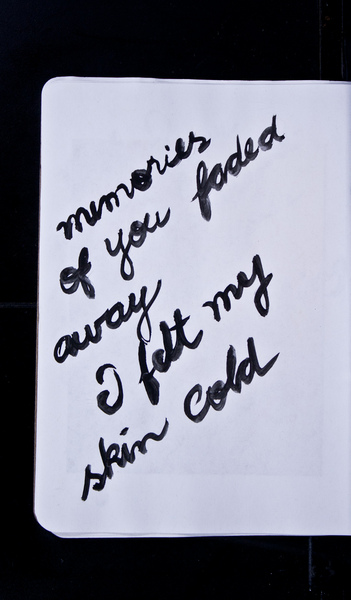 memories
of you faded
away
I felt my
skin cold